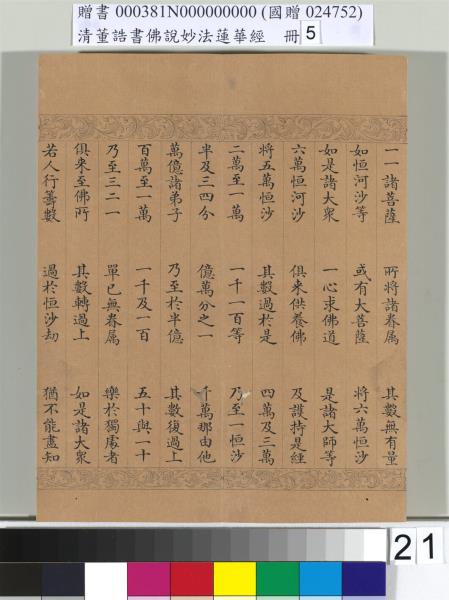 贈書 000381N000000000 (國贈 024752)
清董誥書佛說妙法蓮華經 冊 5
一一諸菩薩 所將諸眷属 其數無有量
如恒河沙等 或有大菩薩 將六萬恒沙
如是諸大衆 一心求佛道 是諸大師等
六萬恒河沙 俱来供養佛 及護持是經
將五萬恒沙 其數過於是 四萬及三萬
二萬至一萬 一千一百等 乃至一恒沙
半及三四分 億萬分之一 千萬那由他
萬億諸弟子 乃至於半億 其數復過上
百萬至一萬 一千及一百 五十與一十
乃至三二一 單己無眷属 樂於獨處者
俱来至佛所 其數轉過上 如是諸大衆
若人行籌數 過於恒沙劫 猶不能盡知
21